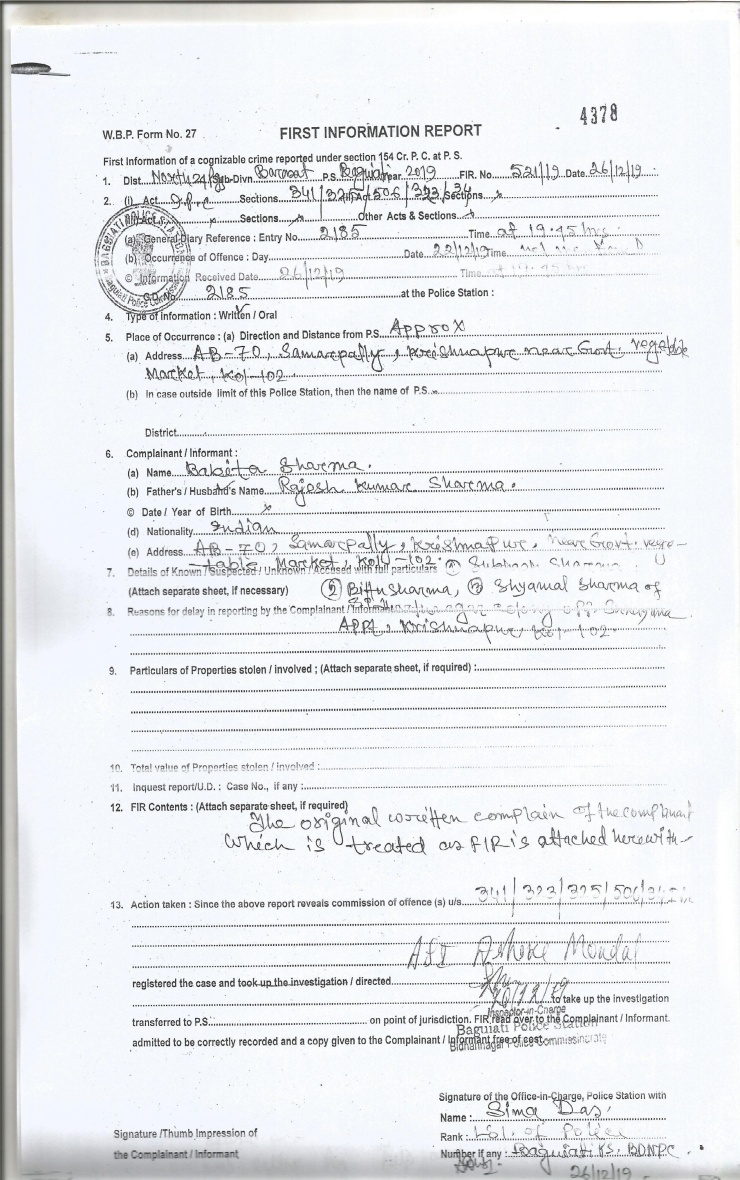 4378
W.B.P. Form No. 27 FIRST INFORMATION REPORT
First Information of a cognizable crime reported under section 154 Cr. P. C. at P. S.
1. Dist. North 24 Sub-Divn. Barasat P.S. Baguiati Year 2019 FIR. No. 521/19 Date. 26/12/19
2. (i) Act I.P.C Sections 341/325/506/323/34 Sections x
Sections x Other Acts & Sections x
(a) General Diary Reference : Entry No. 2185 Time at 19.45 hrs
(b) Occurrence of Offence : Day Date 22/12/19 Time
© Information Received Date 26/12/19 Time at 19.45 hrs
2185 at the Police Station :
4. Type of Information : Written / Oral
5. Place of Occurrence : (a) Direction and Distance from P.S. Approx
(a) Address AB-70, Samarpally, Krishnapur near Govt. vegetable
Market, Kol-102
(b) In case outside limit of this Police Station, then the name of P.S. x
District
6. Complainant / Informant :
(a) Name Babita Sharma.
(b) Father's / Husband's Name Rajesh Kumar Sharma.
© Date / Year of Birth x
(d) Nationality Indian
(e) Address AB-70, Samarpally, Krishnapur, near Govt. vege-
table Market, Kol-102.
7. Details of Known / Suspected / Unknown / Accused with full particulars
(Attach separate sheet, if necessary) ② Bittu Sharma, ③ Shyamal Sharma of
8. Reasons for delay in reporting by the Complainant / Informant
APPT, Krishnapur, Kol-102
9. Particulars of Properties stolen / involved ; (Attach separate sheet, if required) :
10. Total value of Properties stolen / involved :
11. Inquest report/U.D. : Case No., if any :
12. FIR Contents : (Attach separate sheet, if required)
The original written complain of the complainant
which is treated as FIR is attached herewith-
13. Action taken : Since the above report reveals commission of offence (s) u/s. 341/323/325/506/34
ASI Ashoke Mondal
registered the case and took up the investigation / directed
26/12/19 to take up the investigation
Inspector-in-Charge
transferred to P.S. on point of jurisdiction. FIR read over to the Complainant / Informant.
Baguiati Police Station
admitted to be correctly recorded and a copy given to the Complainant / Informant free of cost.
Bidhannagar Police Commissionerate
Signature of the Office-in-Charge, Police Station with
Name : Sima Das
Signature /Thumb Impression of Rank : of Police
the Complainant / Informant Number if any : Baguiati P.S. BDNPC.
26/12/19